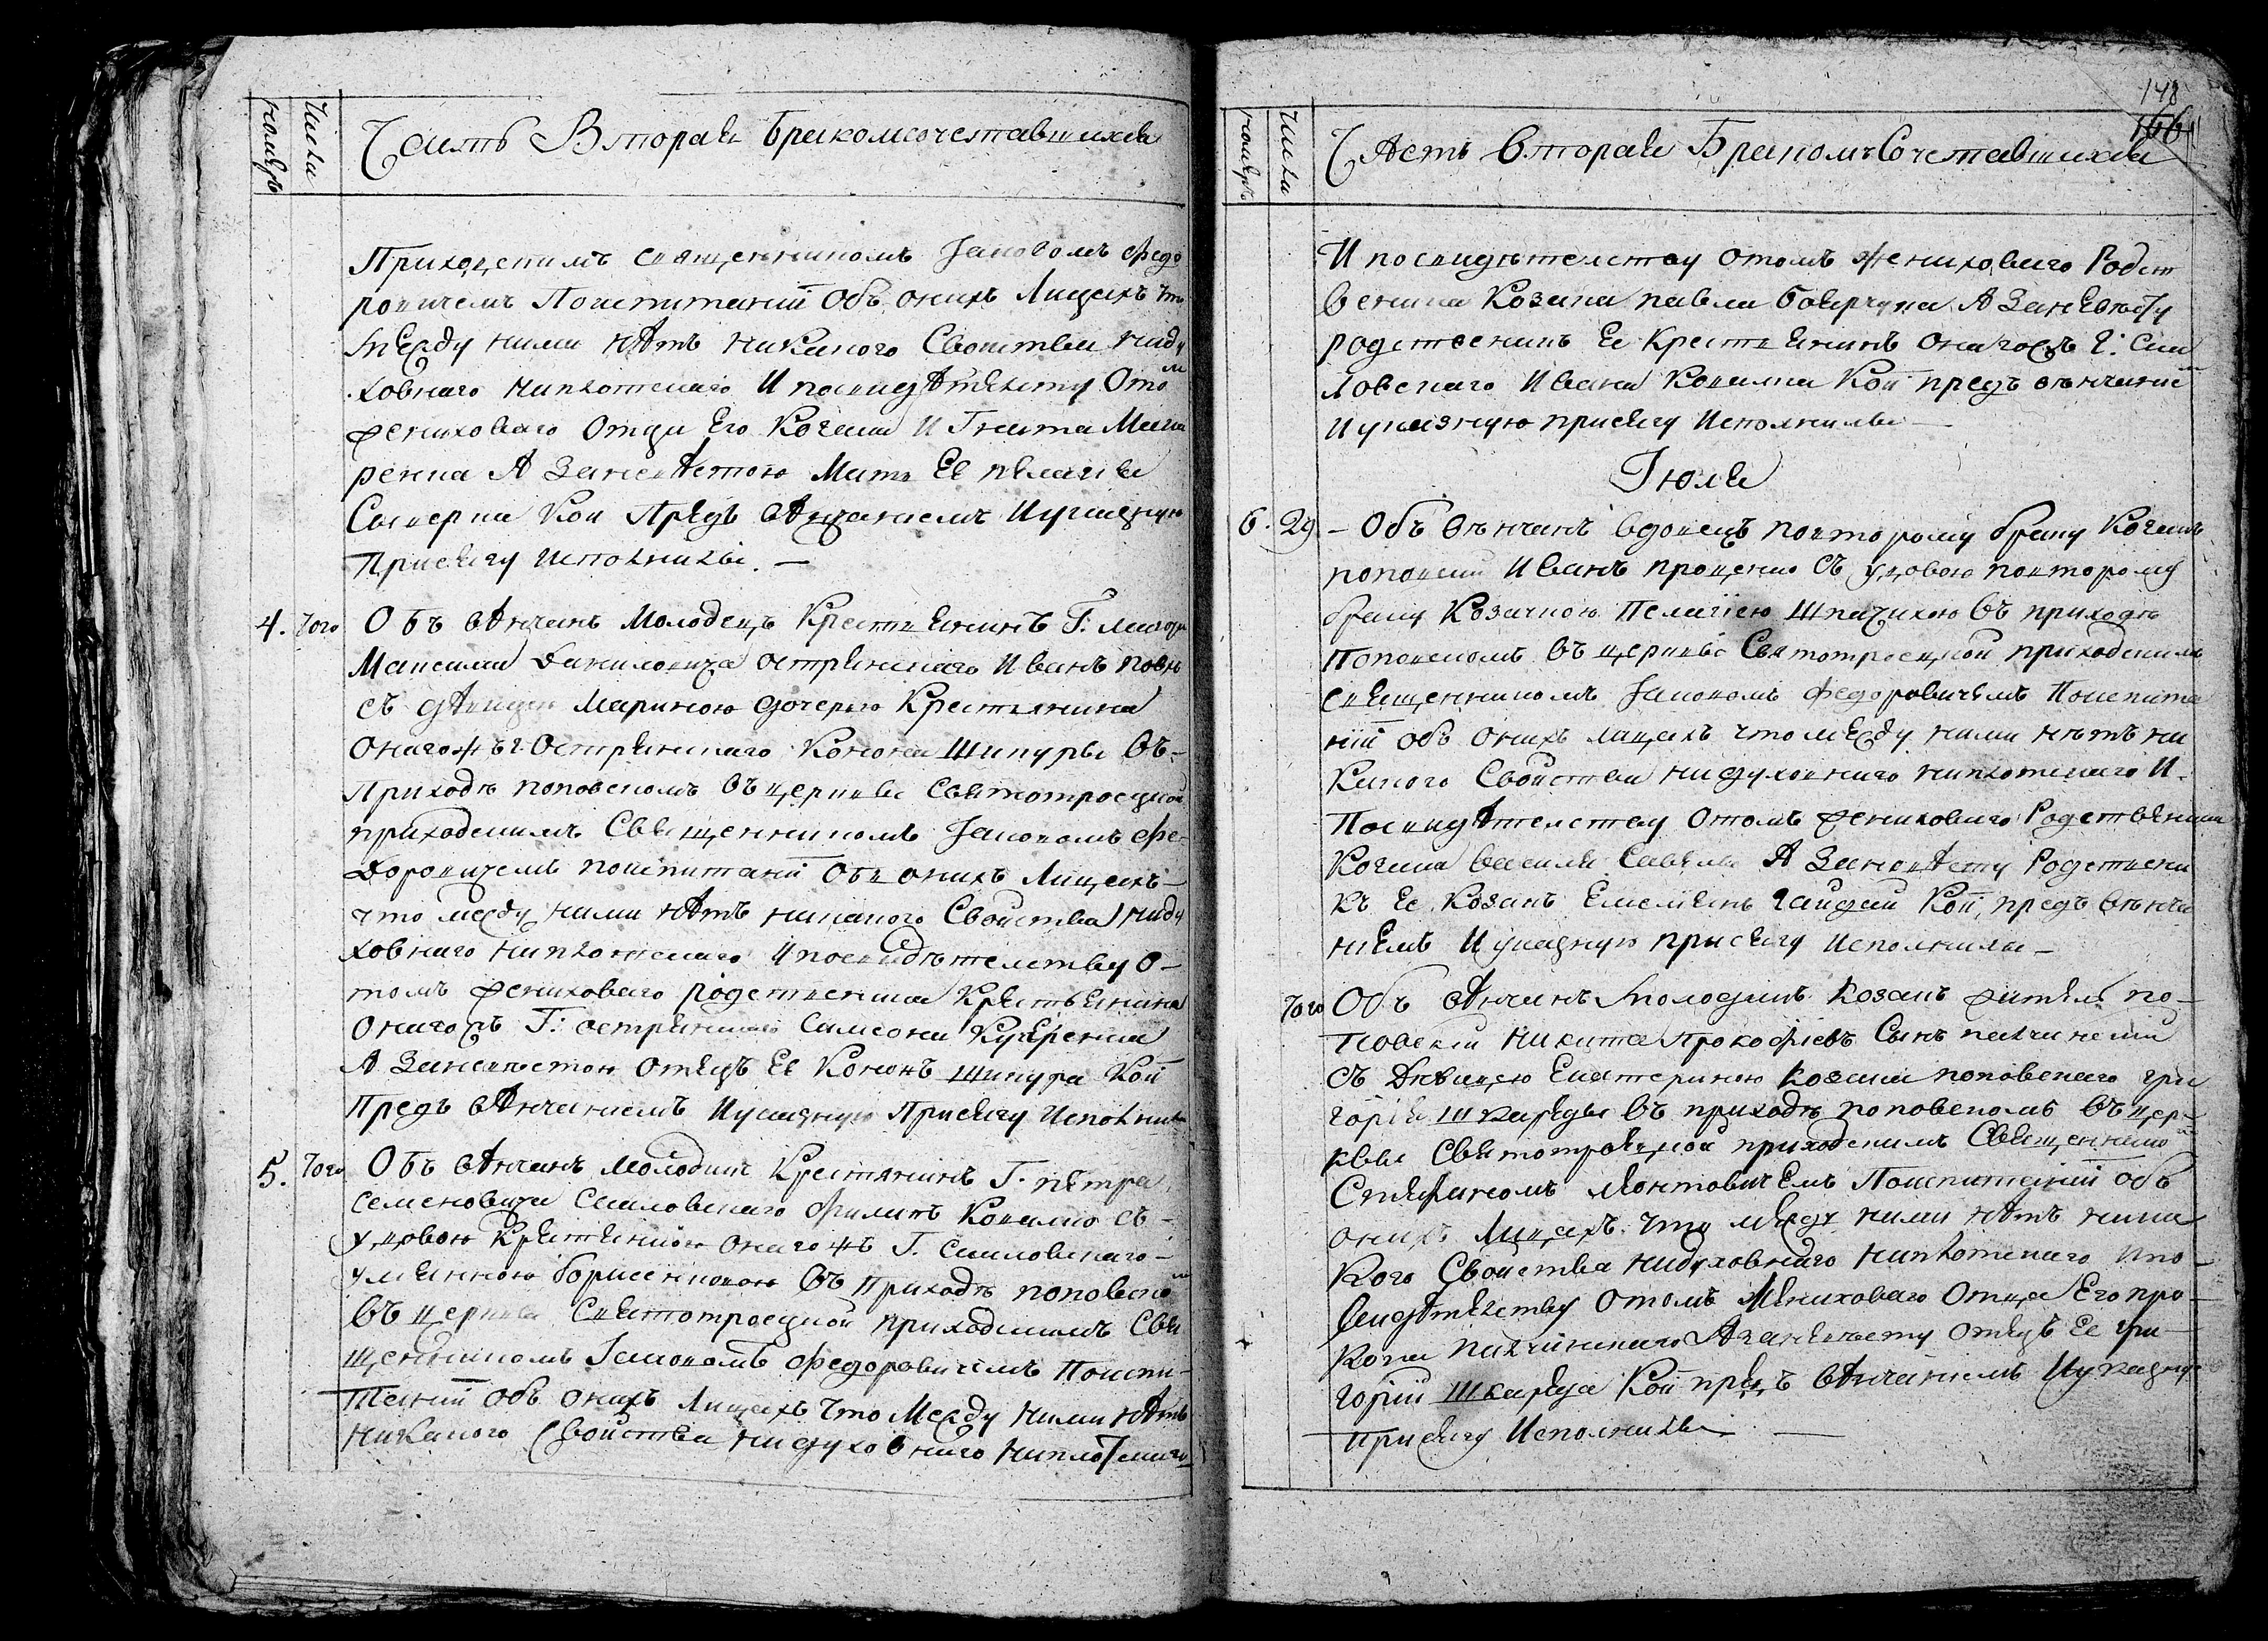 номеръ
Числа
Часть Вторая бракомсочетавшихся
Приходскимъ священникомъ Іаковомъ Федо
ровичемъ Поиспитаніи Объ онихъ Лицахъ что
между ними нѣтъ никакого Свойства ниду
ховнаго ниплотскаго И посвидѣтелству Отом
жениховаго Отца Его Козака Игната Мака
ренка А Заневѣстою Мать Ее пелагія
Кои Предъ вѣнчаніемъ Иуказную
Присягу исполнили. —
4. Того Объ вѣнчанъ Молодецъ Крестянинъ Г: маіора
Максима Даниловича острянскаго Иванъ
съ дѣвицею Мариною дочерью Крестянина
Онагожъ г. Острянскаго Конона Шкуры Въ
Приходѣ поповскомъ въ церкве Святотроецкой
приходскимъ Священникомъ Іаковомъ Фе
доровичемъ поиспитаніи Объ онихъ Лицахъ
что между ними нѣтъ никакого Свойства ниду
ховнаго ниплотскаго Ипосвидѣтелству О
томъ жениховаго родственника Крестьянина
Онагожъ Г: острянскаго Самсона Кучеренка
А Заневѣстою Отецъ Ее Кононъ Шкура Кои
Предъ вѣнчаніемъ Иуказную Присягу Исполнили
5. Того Объ вѣнчанъ молодикъ Крестянинъ Г. пѣтра
Семеновича Силовскаго Филипъ Ковалко съ
удовою Крестянкою Онагожъ Г. Силовскаго
улянною борисенковою Въ Приходѣ поповском
Въ церкве Святотроецкой приходскимъ Свя
щенникомъ Іаковомъ Федоровичемъ Поиспи
таніи Объ онихъ Лицахъ Что Между Ними нѣтъ
Никакого Свойства нидуховнаго Ниплотскаго
148
166
номеръ
Числа
Часть вторая Бракомъ Сочетавшихся
И посвидѣтелству отомъ жениховаго Родст
веника Козака павла А Заневѣсту
родственикъ Ее Крестянинъ Онагожъ Г: Сил
ловскаго Ивана Ковалка Кои предъ вѣнчаніем
Иуказную присягу Исполнили —
Іюля
6. 29 — Объ вѣнчанъ вдовецъ повторому браку Козакъ
поповскій Иванъ проценко Съ удовою повторому
браку Козачкою Пелагіею Шпачихою Въ приходѣ
Поповскомъ Въ церкве Святотроецкой приходскимъ
священникомъ Іаковомъ Федоровичемъ Поиспита
ніи объ Онихъ лицахъ что между ними нѣтъ ни
какого Свойства нидуховнаго ниплотскаго И
Посвидѣтелству Отомъ жениховаго Родственника
Козака Василя А Заневѣсту Родствени
къ Ее Козакъ Емелянъ Гайдай Кои предъ вѣнча
ніемъ Иуказную присягу исполнили —
Того Объ вѣнчанъ Молодикъ Козакъ житель по
повскій Никита Прокофіевъ Сынъ
съ Дѣвицею Екатериною Козака поповскаго Гри
горія Шкаряды въ приходѣ поповскомъ въ цер
кве Святотроецкой приходскимъ Священником
Стефаномъ Леонтовичемъ Поиспитаніи объ
онихъ Лицахъ что между ними нѣтъ ника
кого Свойства нидуховнаго ниплотскаго Ипо
свидѣтелству Отомъ Жениховаго Отца Его про
копа А заневѣсту отецъ Ее Гри
горій Шкаряда Кои предъ вѣнчаніемъ Иуказную
присягу Исполнили —